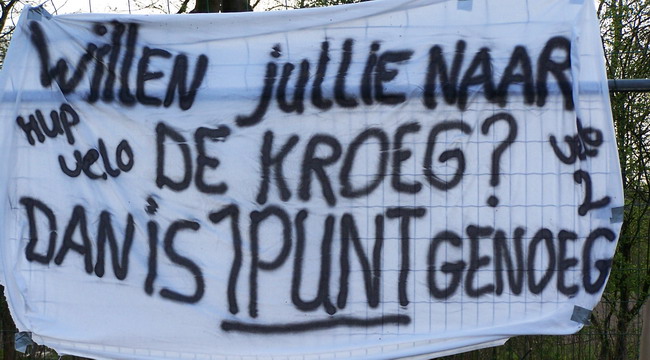 WillEN jullIE NAAR
HUP
VELO
DE KROEG?
Velo
2
DAN iS 1 PUNT GENOEG